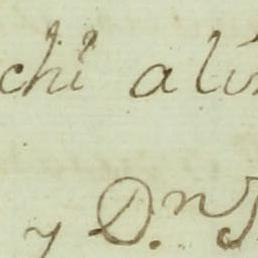 chi alí
y D.ⁿ